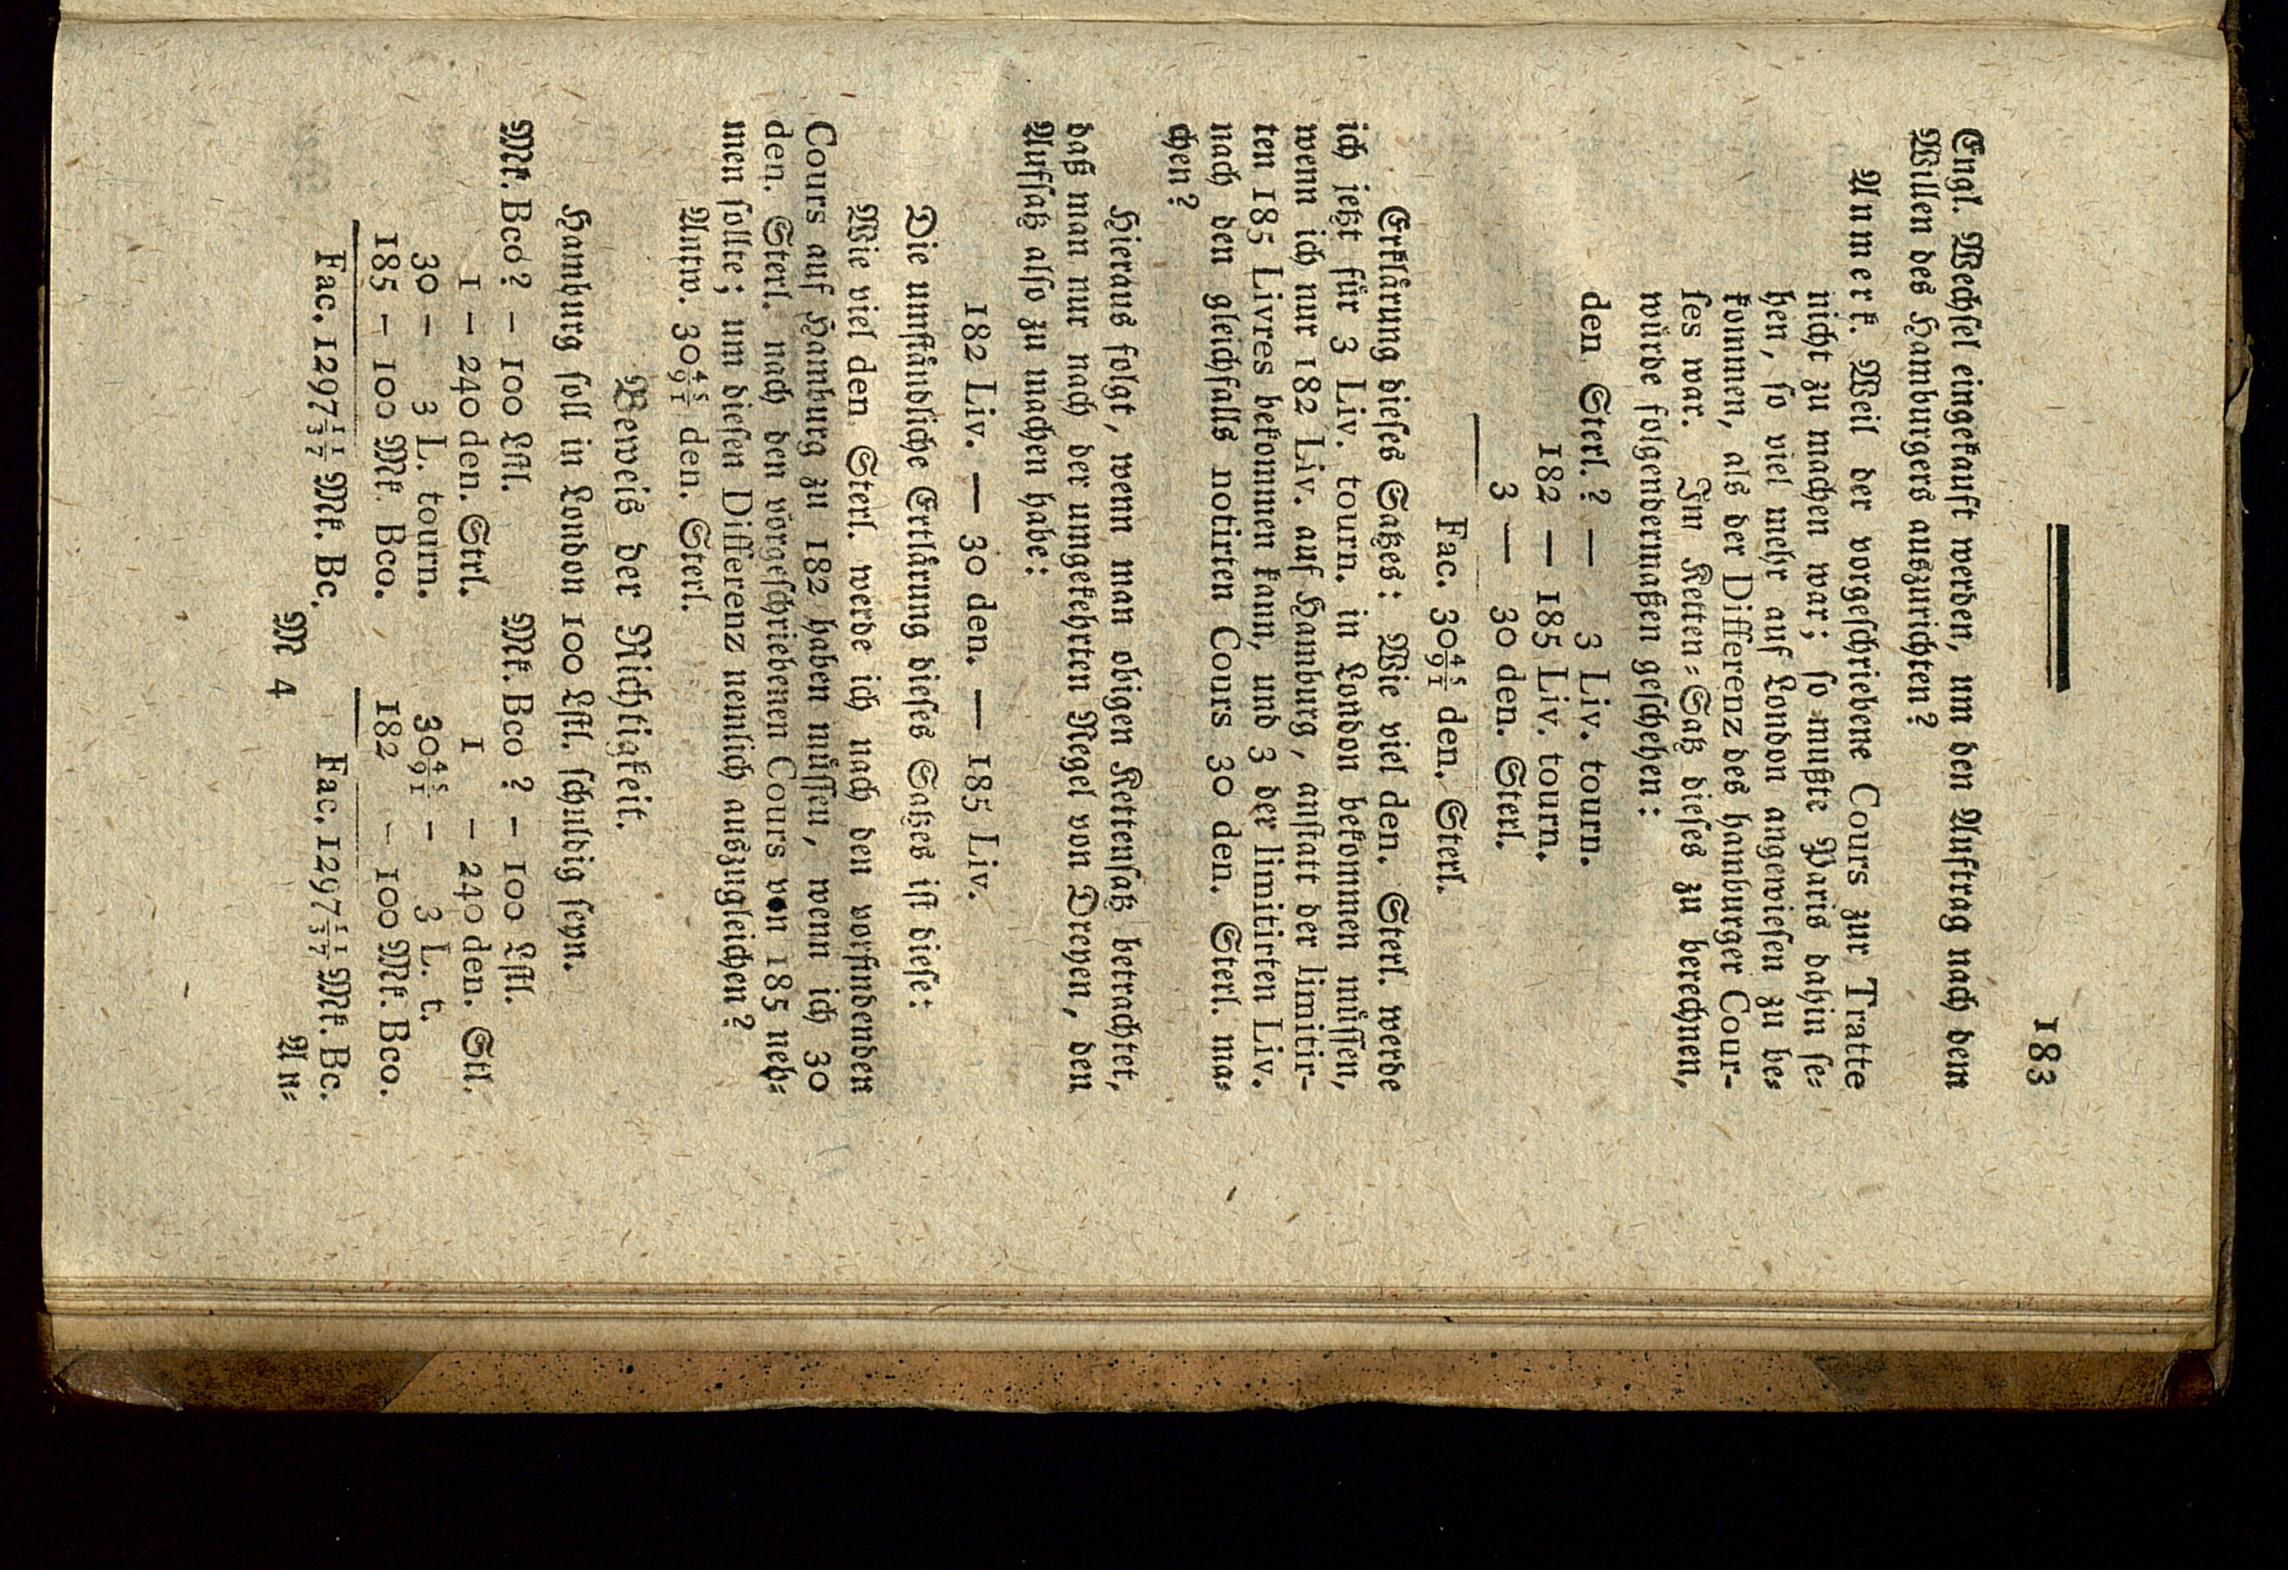 183
Engl. Wechsel eingekauft werden, um den Auftrag nach dem
Willen des Hamburgers auszurichten?
Anmerk. Weil der vorgeschriebene Cours zur Tratte
nicht zu machen war; so mußte Paris dahin se-
hen, so viel mehr auf London angewiesen zu be-
kommen, als der Differenz des hamburger Cour-
ses war. Im Ketten-Satz dieses zu berechnen,
würde folgendermaßen geschehen:
den Sterl. ? — 3 Liv. tourn.
182 — 185 Liv. tourn.
3 — 30 den. Sterl.
Fac. 30 45/91 den. Sterl.
Erklärung dieses Satzes: Wie viel den. Sterl. werde
ich jetzt für 3 Liv. tourn. in London bekommen müssen,
wenn ich nur 182 Liv. auf Hamburg, anstatt der limitir-
ten 185 Livres bekommen kann, und 3 der limitirten Liv.
nach den gleichfalls notirten Cours 30 den. Sterl. ma-
chen?
Hieraus folgt, wenn man obigen Kettensatz betrachtet,
daß man nur nach der umgekehrten Regel von Dreyen, den
Aufsatz also zu machen habe:
182 Liv. — 30 den. — 185 Liv.
Die umständliche Erklärung dieses Satzes ist diese:
Wie viel den. Sterl. werde ich nach den vorfindenden
Cours auf Hamburg zu 182 haben müssen, wenn ich 30
den. Sterl. nach den vorgeschriebenen Cours von 185 neh-
men sollte; um diesen Differenz nemlich auszugleichen?
Antw. 30 45/91 den. Sterl.
Beweis der Richtigkeit.
Hamburg soll in London 100 Lstl. schuldig seyn.
Mk. Bco? – 100 Lstl. Mk. Bco ? – 100 Lstl.
1 – 240 den. Strl. 1 – 240 den. Stl.
30 – 3 L. tourn. 30 45/91 – 3 L. t.
185 – 100 Mk. Bco. 182 – 100 Mk. Bco.
Fac. 1297 11/37 Mk. Bc. Fac. 1297 11/37 Mk. Bc.
M 4 An-